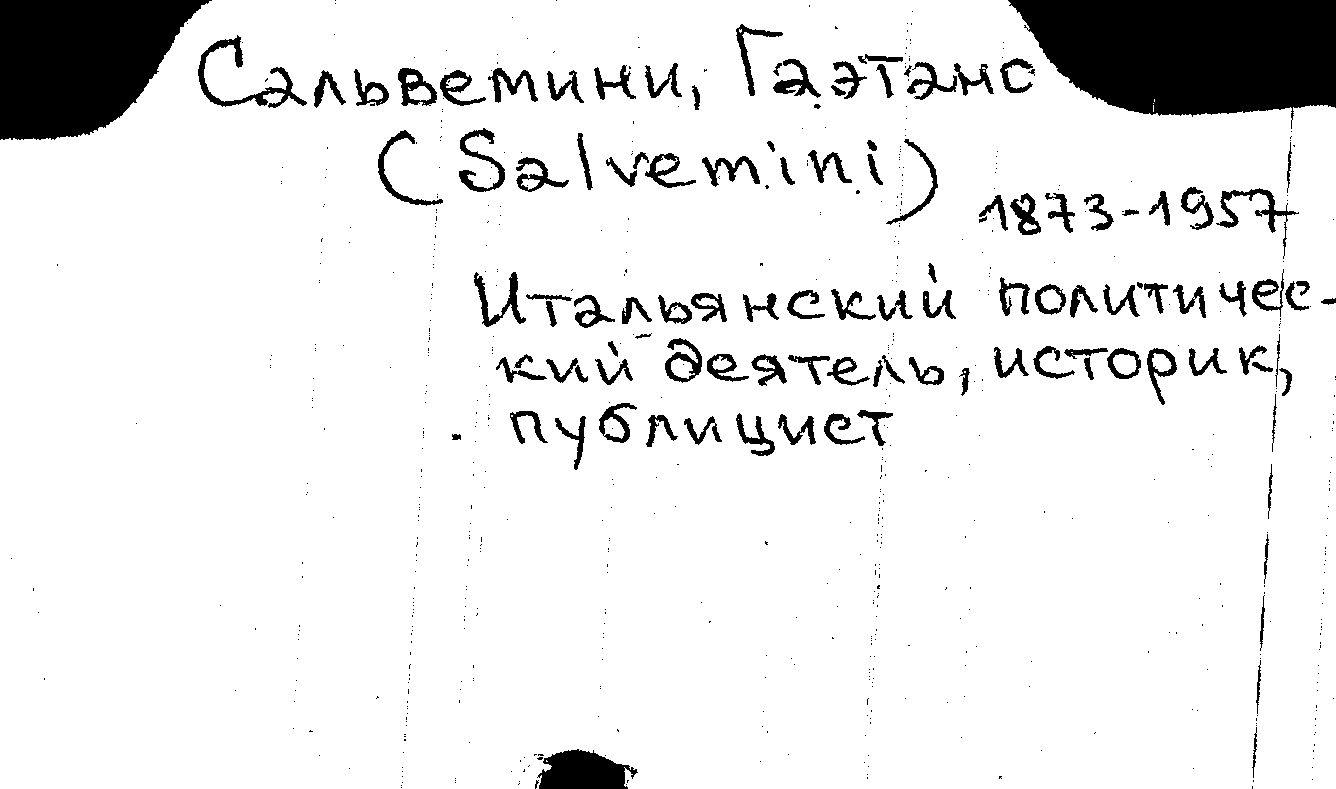 Сальвемини, Гаэтано
(Salvemini)
1873-1957
Итальянский политичес-
кий деятель, историк,
публицист